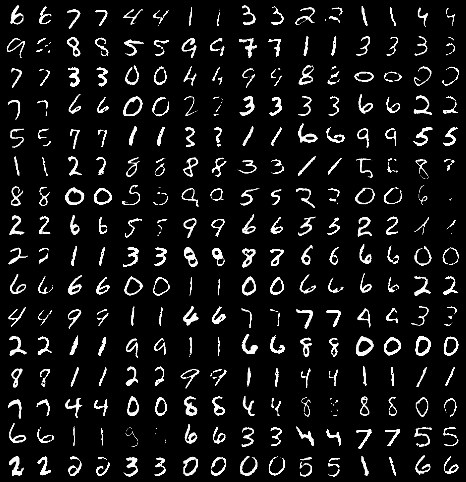 6 6 7 7 4 4 1 1 3 3 2 2 1 1 4 4
9 8 8 5 5 9 9 7 7 1 1 3 3 3 3
7 7 3 3 0 0 4 4 9 9 8 8 0 0 0 0
7 7 6 6 0 0 2 2 3 3 3 3 6 6 2 2
5 5 7 7 1 1 3 3 1 1 6 6 9 9 5 5
1 1 2 2 8 8 8 8 3 3 1 1 5 8
8 8 0 0 5 5 9 9 5 5 2 2 0 0 6
2 2 6 6 5 5 9 9 6 6 5 5 2 2 1 1
2 2 1 1 3 3 8 8 8 8 6 6 6 6 0 0
6 6 6 6 0 0 1 1 0 0 6 6 6 6 2 2
4 4 9 9 1 1 4 6 7 7 7 7 4 4 3 3
2 2 1 1 9 9 1 1 6 6 8 8 0 0 0 0
8 8 1 1 2 2 9 9 1 1 4 4 1 1 1 1
7 7 4 4 0 0 8 8 4 4 8 8 8 8 0 0
6 6 1 1 9 6 6 3 3 4 4 7 7 5 5
2 2 2 2 3 3 0 0 0 0 5 5 1 1 6 6